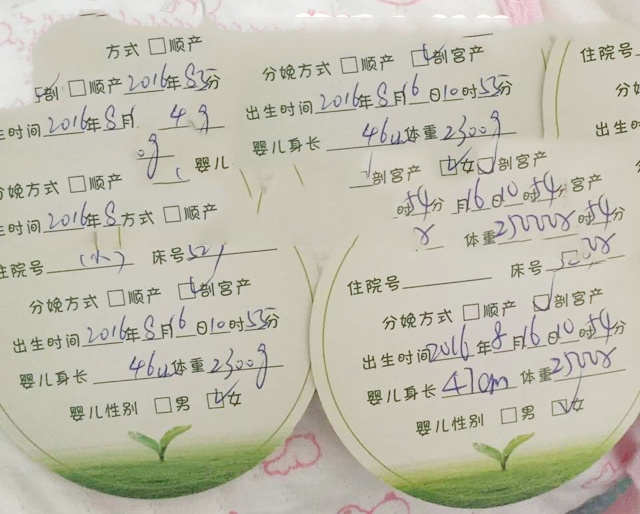 方式 □顺产
剖 □顺产 2016年 855分
生时间 2016年8月 4 g
g 婴儿
分娩方式 □顺产
生时间 2016年8 方式 □顺产
住院号 (小) 床号 52
分娩方式 □顺产 ☑剖宫产
出生时间 2016年8月16日10时55分
婴儿身长 46cm 体重 2300g
婴儿性别 □男 ☑女
分娩方式 □顺产 ☑剖宫产
出生时间 2016年8月16日10时55分
婴儿身长 46cm 体重 2300g
剖宫产 ☑女 ☑剖宫产
时54分 月16日10时54分 宫产
体重 时54
住院号 床号
分娩方式 □顺产 ☑剖宫产
出生时间 2016年8月16日10时54分
婴儿身长 47cm 体重 2500g
婴儿性别 □男 ☑女
住院号
分娩
出生时